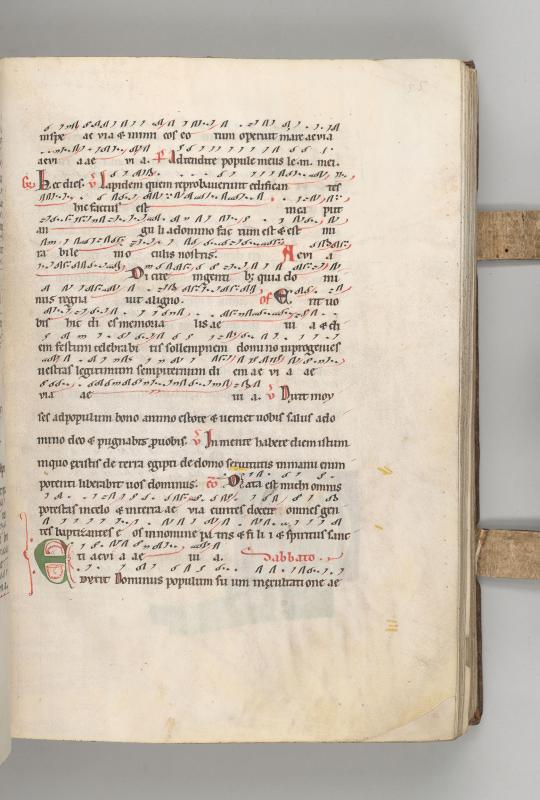 in spe ae via & inimi cos eo rum operuit mare aevia
aevi a ae vi a. Ps Adtendite popule meus le.m. mei.
Gr Hec dies. V Lapidem quem reprobaverunt edifican tes
hic factus est in ca put
an gu li a domino fac tum est & est mi
ra bile in o culis nostris. Aevi a
Di cite in genti bus quia do mi
nus regna vit a ligno. of E rit vo
bis hic di es memoria lis ae vi a & di
em festum celebrabi tis sollempnem domino in progenies
vestras legitimum sempiternum di em ae vi a ae
via ae vi a. V Dixit moy
ses ad populum bono animo estote & veniet vobis salus a do
mino deo & pugnabit pro vobis. V In mente habete diem istum
in quo existis de terra egipti de domo servitutis in manu enim
potenti liberabit vos dominus. co Data est michi omnis
potestas in celo & in terra ae via euntes docete omnes gen
tes baptizantes e os in nomine pa tris & fi li i & spiritus sanc
ti aevi a ae vi a. Sabbato
Eduxit Dominus populum su um in exultatione ae